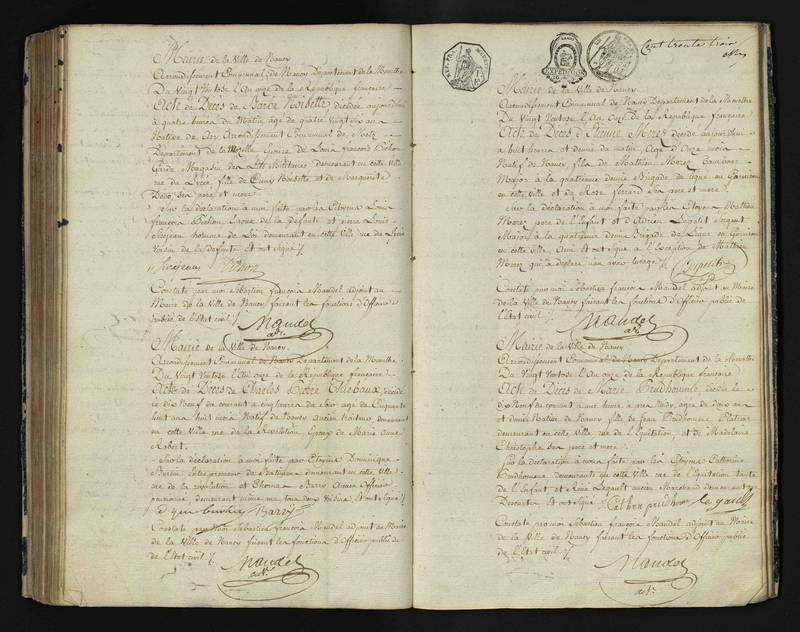 Mairie de la Ville de Nancy
Arrondissement Communal de Nancy Departement de la Meurthe
Du Vingt Ventose l'An onze de la Republique francaise
Acte de Deces de Barbe Noisette décédée aujourd'hui
à quatre heures du matin age de quatre vingt six ans
Native de Ars Arrondissement Communal de Metz
Département de la Mozelle Epouse de Louis françois
Garde Magasin des Lits Militaires demeurant en cette Ville
rue du Lycée, fille de Noisette et de Marguerite
ses pere et mere
Sur la déclaration à moi faite par les Citoyens Louis
françois Epoux de la défunte et pierre Louis
homme de Loi demeurant en cette Ville rue du Lycée
Voisin de la défunte Et ont signé
Constaté par moi Sébastien françois Mandel adjoint au
Maire de la Ville de Nancy faisant les fonctions d'Officier
public de l'Etat civil
Mandel
adt.
Mairie de la Ville de Nancy
Arrondissement Communal de Nancy Departement de la Meurthe
Du Vingt Ventose l'An onze de la Republique francaise
Acte de Deces de Charles Thiebaux, décédé
le dix Neuf du courant a cinq heures du soir age de Cinquante
huit ans huit mois Natif de Nancy ancien traiteur demeurant
en cette Ville rue de la Révolution, Epoux de Marie Anne
Robert.
Sur la déclaration à moi faite par Citoyens Dominique
Entrepreneur de Batiments demeurant en cette Ville
rue de la révolution et Thomas Barry Ancien Officier
pensionné demeurant même rue tous deux Voisins Et ont signé
Barry
Constaté par moi Sébastien françois Mandel adjoint au Maire
de la Ville de Nancy faisant les fonctions d'Officier public de
de l'Etat civil
Mandel
adt.
Cent trente trois
Mairie de la Ville de Nancy
Arrondissement Communal de Nancy Departement de la Meurthe
Du Vingt Ventose l'An onze de la Republique francaise
Acte de Deces d'Etienne Merez décédé aujourd'hui
a huit heures et demie du matin Age d'Onze mois
Natif de Nancy, fils de Mathieu Merez Tambour
Major à la quatrieme demie Brigade de Ligne en Garnison
en cette Ville et de Rose ses pere et mere
Sur la déclaration à moi faite par les Citoyens Mathieu
Merez pere de l'Enfant et d'Adrien Sergent
Major à la quatrieme demie Brigade de Ligne en Garnison
en cette Ville Ami Et ont signé à l'Exception de Mathieu
Merez qui a déclaré
Constaté par moi Sébastien françois Mandel adjoint au Maire
de la Ville de Nancy faisant les fonctions d'Officier public de
l'Etat civil
Mandel
adt.
Mairie de la Ville de Nancy
Arrondissement Communal de Nancy Departement de la Meurthe
Du Vingt Ventose l'An onze de la Republique francaise
Acte de Deces de Marie Prudhomme, décédée le
dix Neuf du courant a une heure après midy, age de deux ans
et demie Native de Nancy fille de Jean Prudhomme
demeurant en cette Ville rue de l'Equitation, et de Madelaine
Christophe ses pere et mere
Sur la Déclaration à moi faite par les Citoyens Catherine
Prudhomme demeurante en cette Ville rue de l'Equitation tante
de l'Enfant et ancien Marchand demeurant
Et ont signé Cathrin prudhom
Constaté par moi Sébastien françois Mandel adjoint au Maire
de la Ville de Nancy faisant les fonctions d'Officier public
de l'Etat civil
Mandel
adt.